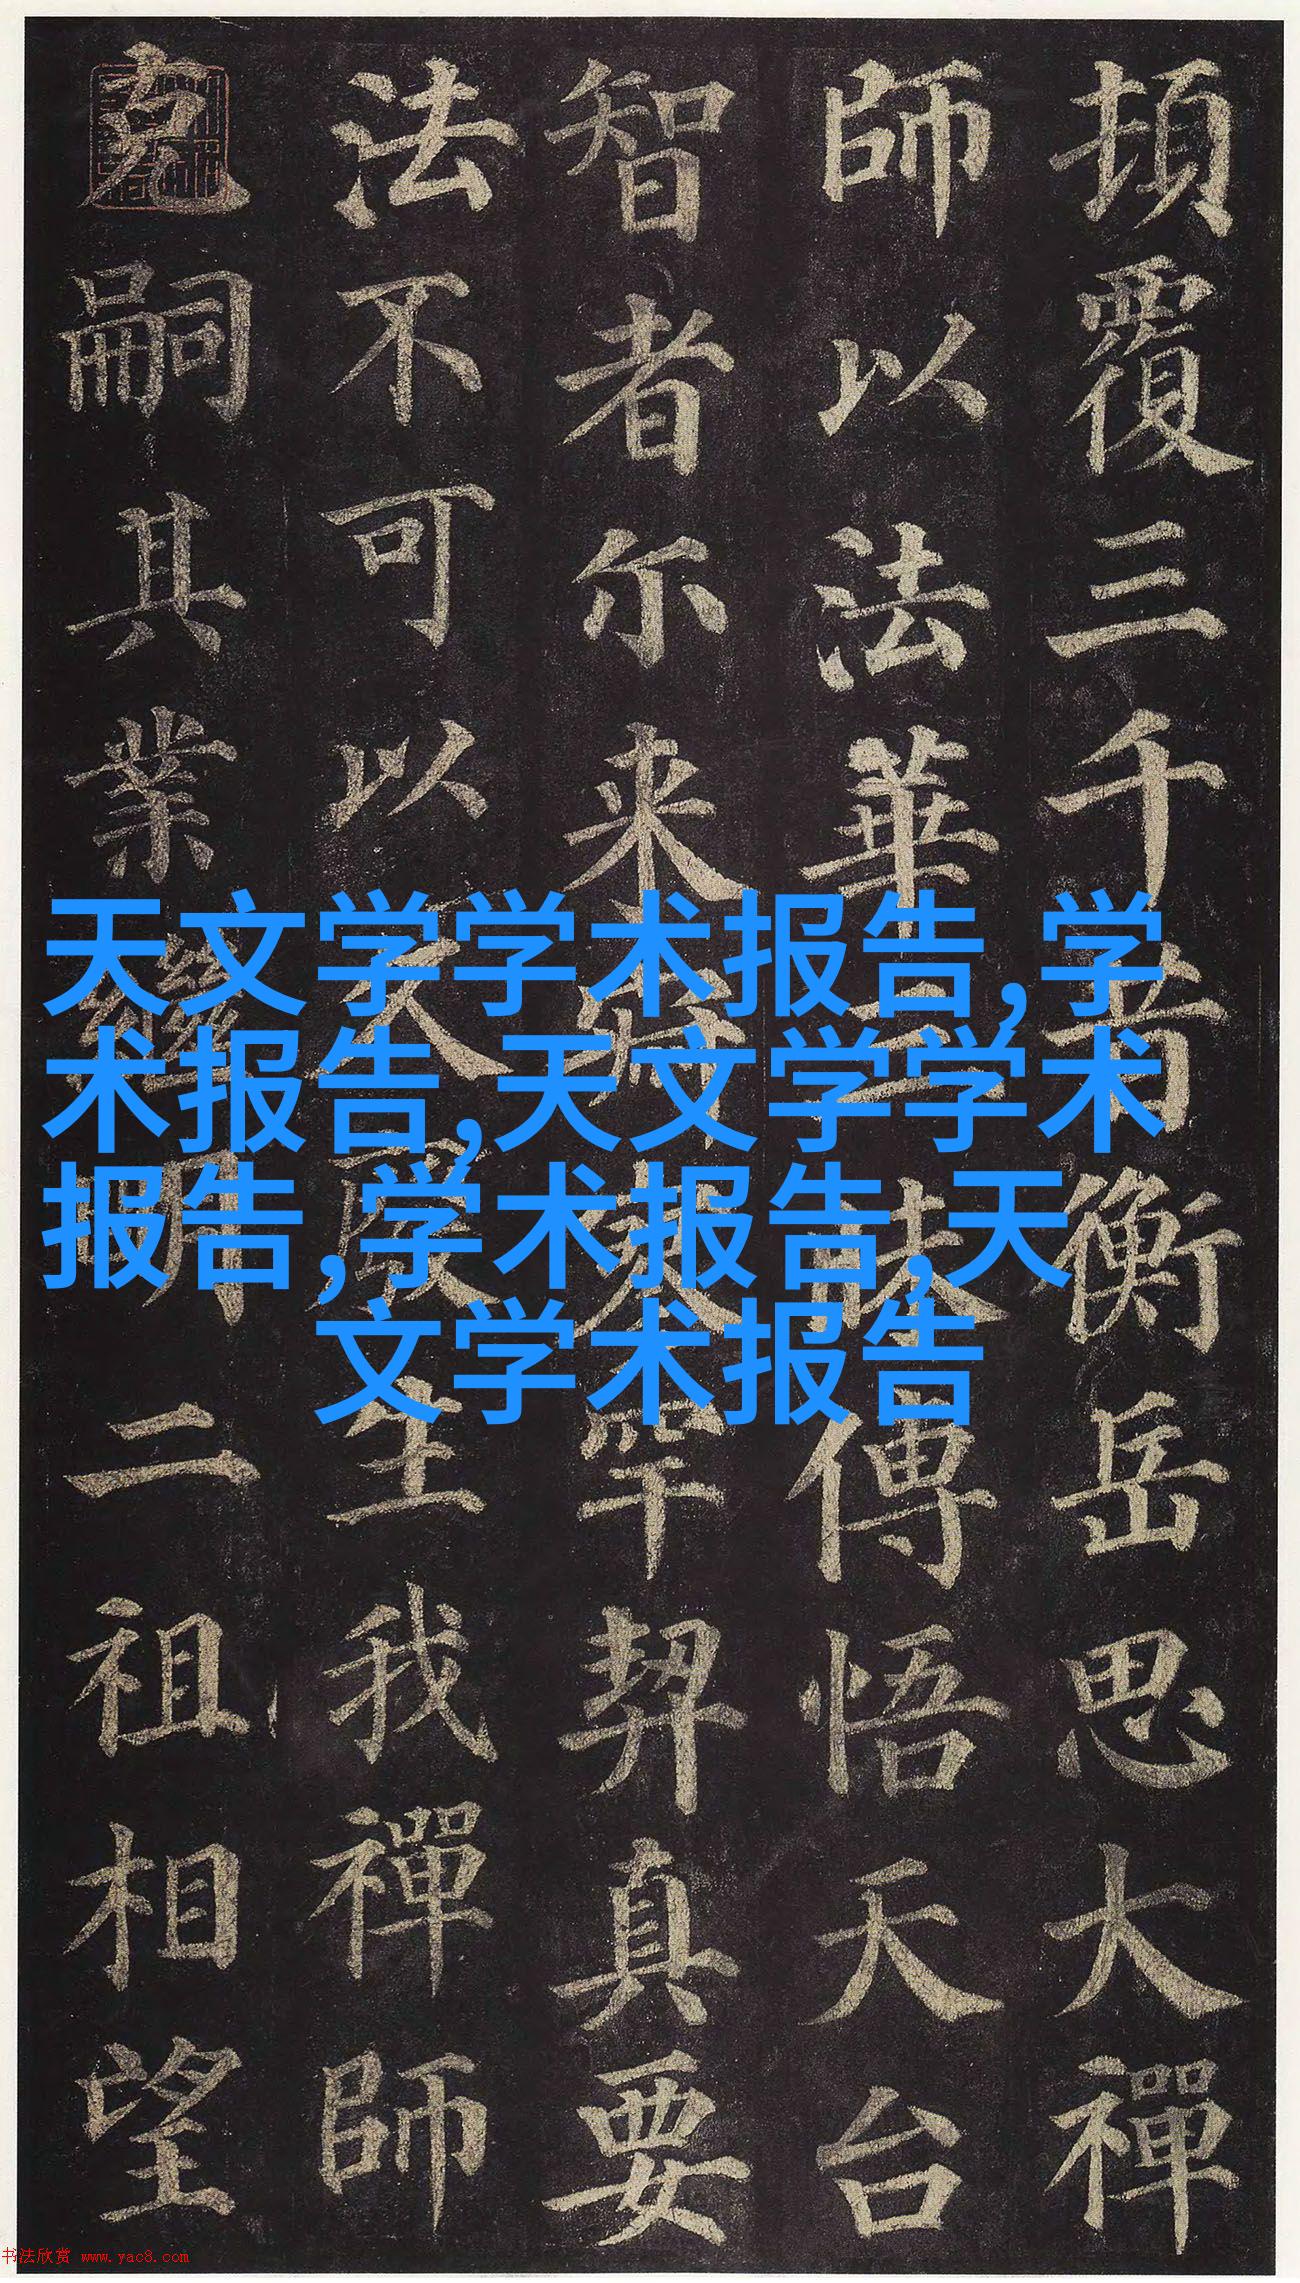 頓覆三千昔衡岳思大禪
師以法華三昧傳悟天台
智者尔来寂寥罕契真要
法不可以久廢生我禪師
克嗣其業繼明二祖相望
天文学学术报告,学
术报告,天文学学术
报告,学术报告,天
文学术报告
书法欣赏 www.yac8.com